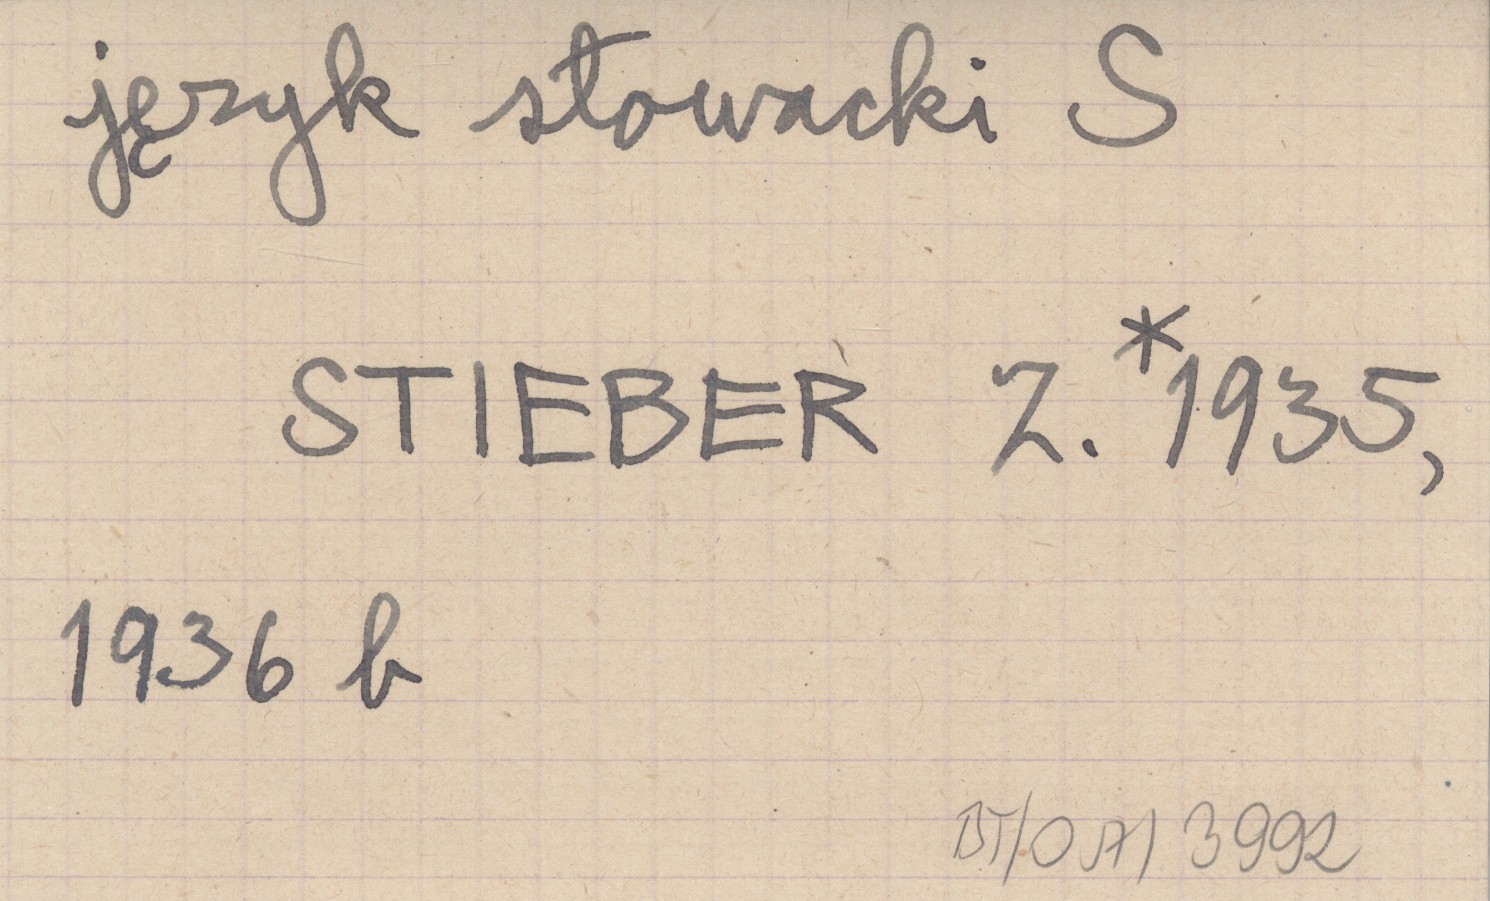 język słowacki S
STIEBER Z. *1935,
1936 b
BT/OJA/3992